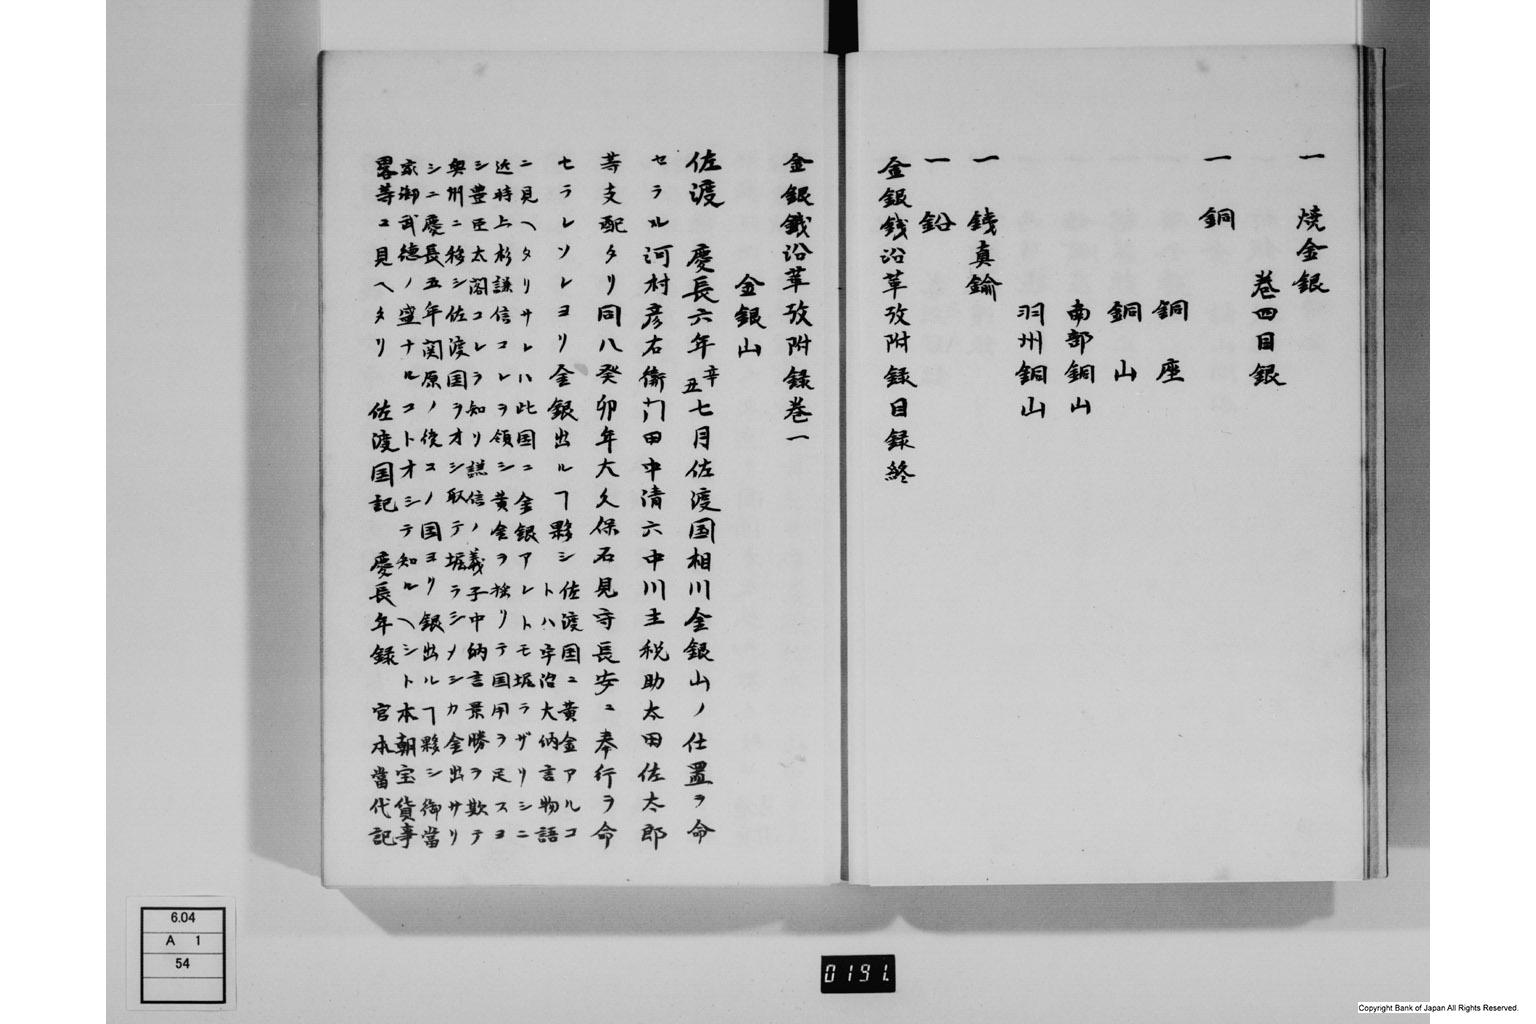 一 焼金銀
巻四目銀
一 銅
銅座
銅山
南部銅山
羽州銅山
一 銭真鍮
一 鉛
金銀銭沿革攷附録目録終
金銀銭沿革攷附録巻一
金銀山
佐渡 慶長六年辛丑七月佐渡国相川金銀山ノ仕置ヲ命
セラル河村彦右衛門田中清六中川主税助太田佐太郎
等支配タリ同八癸卯年大久保石見守長安ニ奉行ヲ命
セラレソレヨリ金銀出ルヿ夥シ佐渡国ニ黄金アルコ
トハ宇治大納言物語
ニ見ヘタリサレハ此国ニ金銀アレトモ堀ラザリシニ
近時上杉謙信コレヲ領シ黄金ヲ採リテ国用ヲ足スヨ
シ豊臣太閤コレラ知リ謙信ノ義子中納言景勝ヲ欺テ
奥州ニ移シ佐渡国ヲオシ取テ堀ラシメシカ金出サリ
シニ慶長五年関原ノ後コノ国ヨリ銀出ルヿ夥シ御當
家御武徳ノ盛ナルコトオシテ知ルヘシト本朝宝貨事
畧等ニ見ヘタリ 佐渡国記 慶長年録 宮本當代記
6.04
A 1
54
0191.
Copyright Bank of Japan All Rights Reserved.